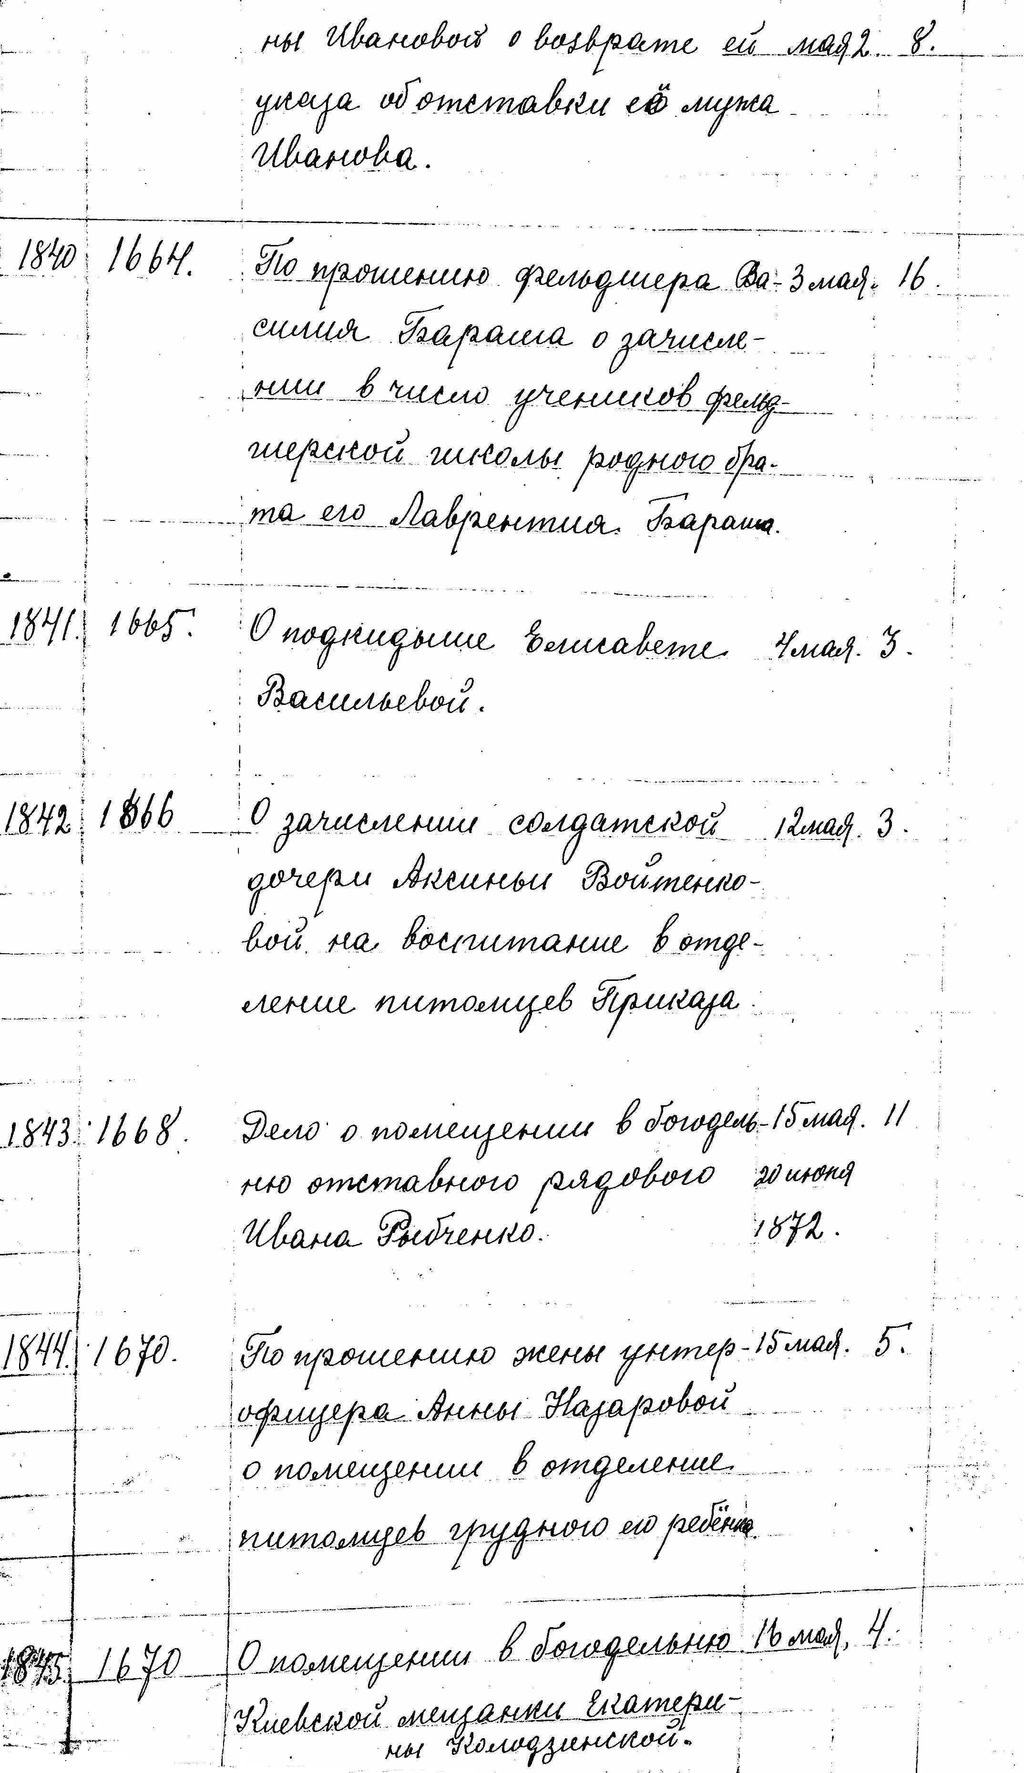 ны Ивановой о возврате ей мая 2. 8.
указа об отставки её мужа
Иванова.
1840 1664. По прошению фельдшера Ва- 3 мая. 16.
силия Бараша о зачисле-
нии в число учеников фельд-
шерской школы родного бра-
та его Лаврентия Бараша.
1841. 1665. О подкидыше Елисавете 4 мая. 3.
Васильевой.
1842 1666 О зачислении солдатской 12 мая. 3.
дочери Аксиньи Войтенко-
вой на воспитание в отде-
ление питомцев Приказа
1843. 1668. Дело о помещении в богодель- 15 мая. 11
ню отставного рядового 20 июня
Ивана Рыбченко. 1872.
1844. 1670. По прошению жены унтер- 15 мая. 5.
офицера Анны Назаровой
о помещении в отделение
питомцев грудного ею ребёнка
1845. 1670 О помещении в богодельню 16 мая. 4.
Киевской мещанки Екатери-
ны Колодзинской.